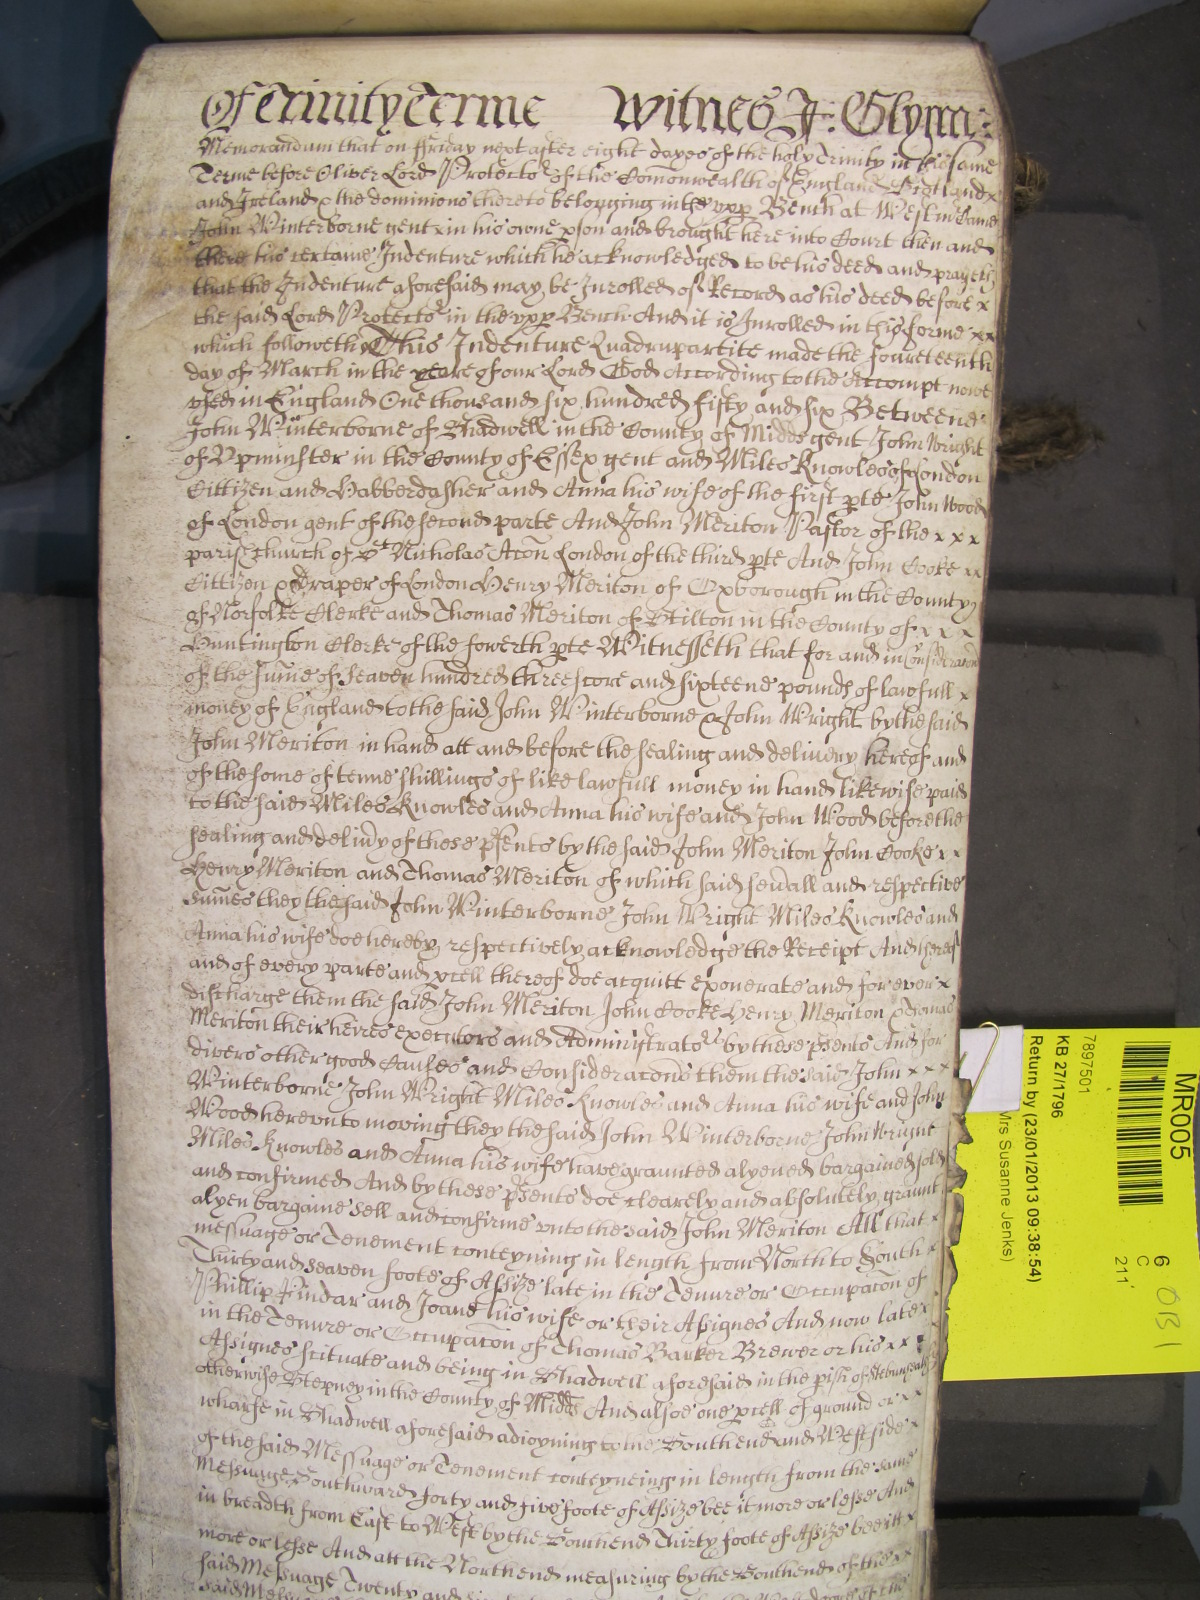 Of Trinity Terme Witnes J: Glynn:
Memorandum that on ffriday next after eight dayes of the holy Trinity in this same
Terme before Oliver Lord Protector of the Comonwealth of England Scotland x
and Ireland & the dominions thereto belonging in the vpp Bench at Westm Came
John Winterborne gent in his owne pson and brought here into Court then and
there his certaine Indenture which he acknowledged to be his deed and prayeth
that the Indenture aforesaid may be Inrolled of Record as his deed before x
the said Lord Protector in the vpp Bench And it is Inrolled in this forme x x
which followeth This Indenture Quadrupartite made the foureteenth
day of March in the yeare of our Lord God According to the Accompt nowe
vsed in England One thousand six hundred fifty and six Betweene
John Winterborne of Shadwell in the County of Midds gent John Wright
of Vpminster in the County of Essex gent and Miles Knowles of London
Cittizen and Habberdasher and Anna his wife of the first pte John Wood
of London gent of the second parte And John Meriton Pastor of the x x x
parish church of St Nicholas Acon London of the third pte And John Cooke x x
Cittizen & Draper of London Henry Meriton of Oxborough in the County
of Norfolke Clerke and Thomas Meriton of Stilton in the County of x x x
Huntington Clerke of the fowerth pte Witnesseth that for and in Consideracon
of the sume of seaven hundred threescore and sixteene pounds of lawfull x
money of England to the said John Winterborne & John Wright by the said
John Meriton in hand att and before the sealing and delivery hereof and
of the some of tenne shillings of like lawfull money in hand likewise paid
to the said Miles Knowles and Anna his wife and John Wood before the
sealing and delivy of these psents by the said John Meriton John Cooke x x
Henry Meriton and Thomas Meriton of which said sevall and respective
sumes they the said John Winterborne John Wright Miles Knowles and
Anna his wife doe hereby respectively acknowledge the Receipt And thereof
and of every parte and pcell thereof doe acquitt exonerate and for ever x
discharge them the said John Meriton John Cooke Henry Meriton & Thomas
Meriton their heires executors and Administrators by these psents And for
divers other good Causes and Consideracons them the said John x x x
Winterborne John Wright Miles Knowles and Anna his wife and John
Wood herevnto moving they the said John Winterborne John Wright
Miles Knowles and Anna his wife have graunted alyened bargained sold
and confirmed And by these psents doe clearely and absolutely graunt
alyen bargaine sell and confirme vnto the said John Meriton All that x
messuage or Tenement conteyning in length from North to South x
Thirty and seaven foote of Assize late in the Tenure or Occupacon of
Phillip Pindar and Joane his wife or their Assignes And now late x
in the Tenure or Occupacon of Thomas Barker Brewer or his x x
Assignes scituate and being in Shadwell aforesaid in the pish of Stebunheath
otherwise Stepney in the County of Midds And alsoe one pcell of ground or x x
wharfe in Shadwell aforesaid adioyning to the Southend and Westside x
of the said Messuage or Tenement conteyneing in length from the same
Messuage Southward forty and five foote of Assize bee it more or lesse And
in breadth from East to West by the Southend Thirty foote of Assize bee itt x
more or lesse And att the Northend measuring by the Southend of the x x
said Messuage Twenty and
said Messuage
MR005
6
C
211'
0131
7897501
KB 27/1796
Return by (23/01/2013 09:38:54)
Mrs Susanne Jenks)